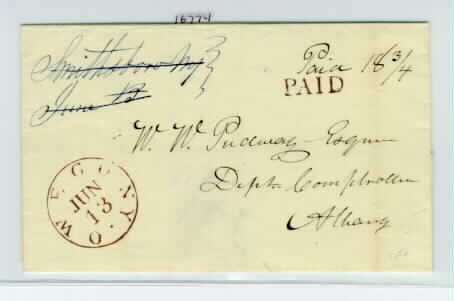 16774
Smithsboro NY
June 13
Paid 18 3/4
PAID
W. W. Esqr
Dept Comptroller
Albany
OWEGO N.Y.
JUN
13